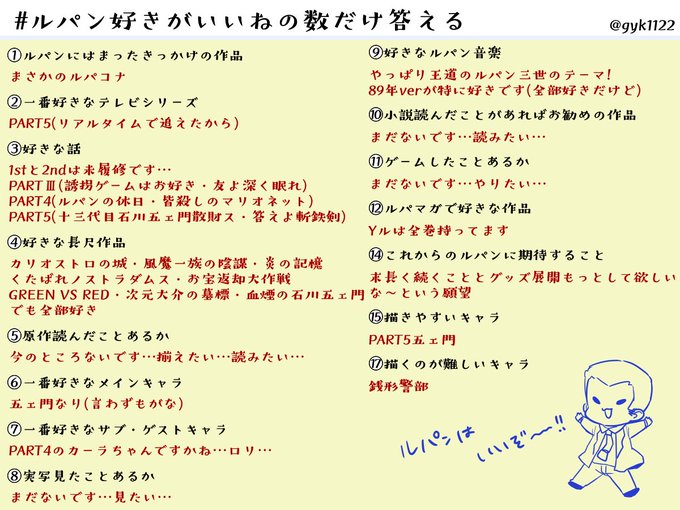 #ルパン好きがいいねの数だけ答える
@gyk1122
①ルパンにはまったきっかけの作品
まさかのルパコナ
②一番好きなテレビシリーズ
PART5(リアルタイムで追えたから)
③好きな話
1stと2ndは未履修です…
PARTⅢ(誘拐ゲームはお好き・友よ深く眠れ)
PART4(ルパンの休日・皆殺しのマリオネット)
PART5(十三代目石川五ェ門散財ス・答えよ斬鉄剣)
④好きな長尺作品
カリオストロの城・風魔一族の陰謀・炎の記憶
くたばれノストラダムス・お宝返却大作戦
GREEN VS RED・次元大介の墓標・血煙の石川五ェ門
でも全部好き
⑤原作読んだことあるか
今のところないです…揃えたい…読みたい…
⑥一番好きなメインキャラ
五ェ門なり(言わずもがな)
⑦一番好きなサブ・ゲストキャラ
PART4のカーラちゃんですかね…ロリ…
⑧実写見たことあるか
まだないです…見たい…
⑨好きなルパン音楽
やっぱり王道のルパン三世のテーマ!
89年verが特に好きです(全部好きだけど)
⑩小説読んだことがあればお勧めの作品
まだないです…読みたい…
⑪ゲームしたことあるか
まだないです…やりたい…
⑫ルパマガで好きな作品
Yルは全巻持ってます
⑭これからのルパンに期待すること
末長く続くこととグッズ展開もっとして欲しい
な〜という願望
⑮描きやすいキャラ
PART5五ェ門
⑰描くのが難しいキャラ
銭形警部
ルパンは
いいぞ〜!!